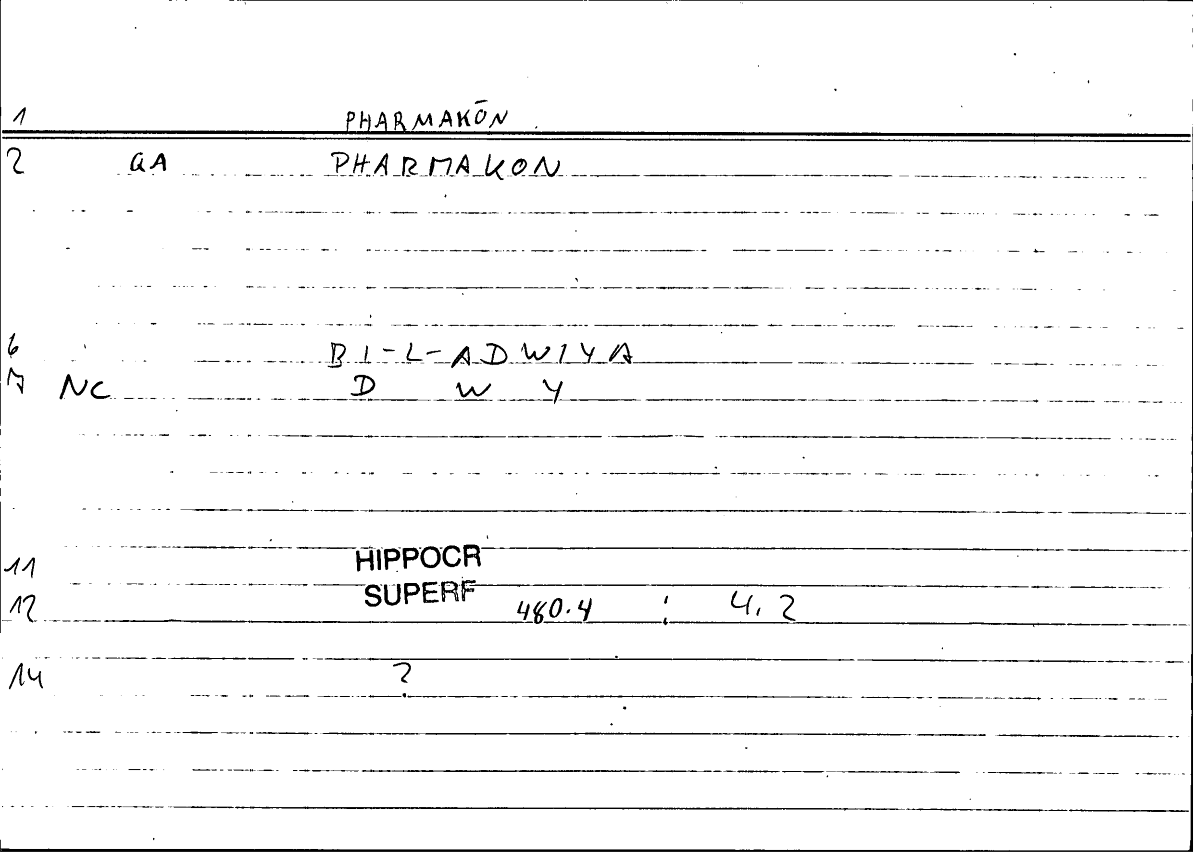 1 PHARMAKŌN
2 GA PHARMAKON
6 BI-L-ADWIYA
7 NC D W Y
11 HIPPOCR
12 SUPERF 480.4 : 4,2
14 ?